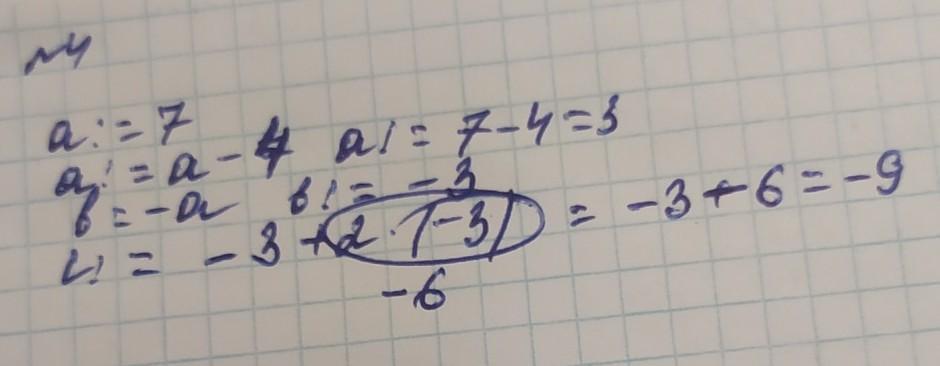 №4
a:=7
a:=a-4 a:=7-4=3
b=-a b:=-3
c:=-3+2·(-3)=-3+6=-9
-6